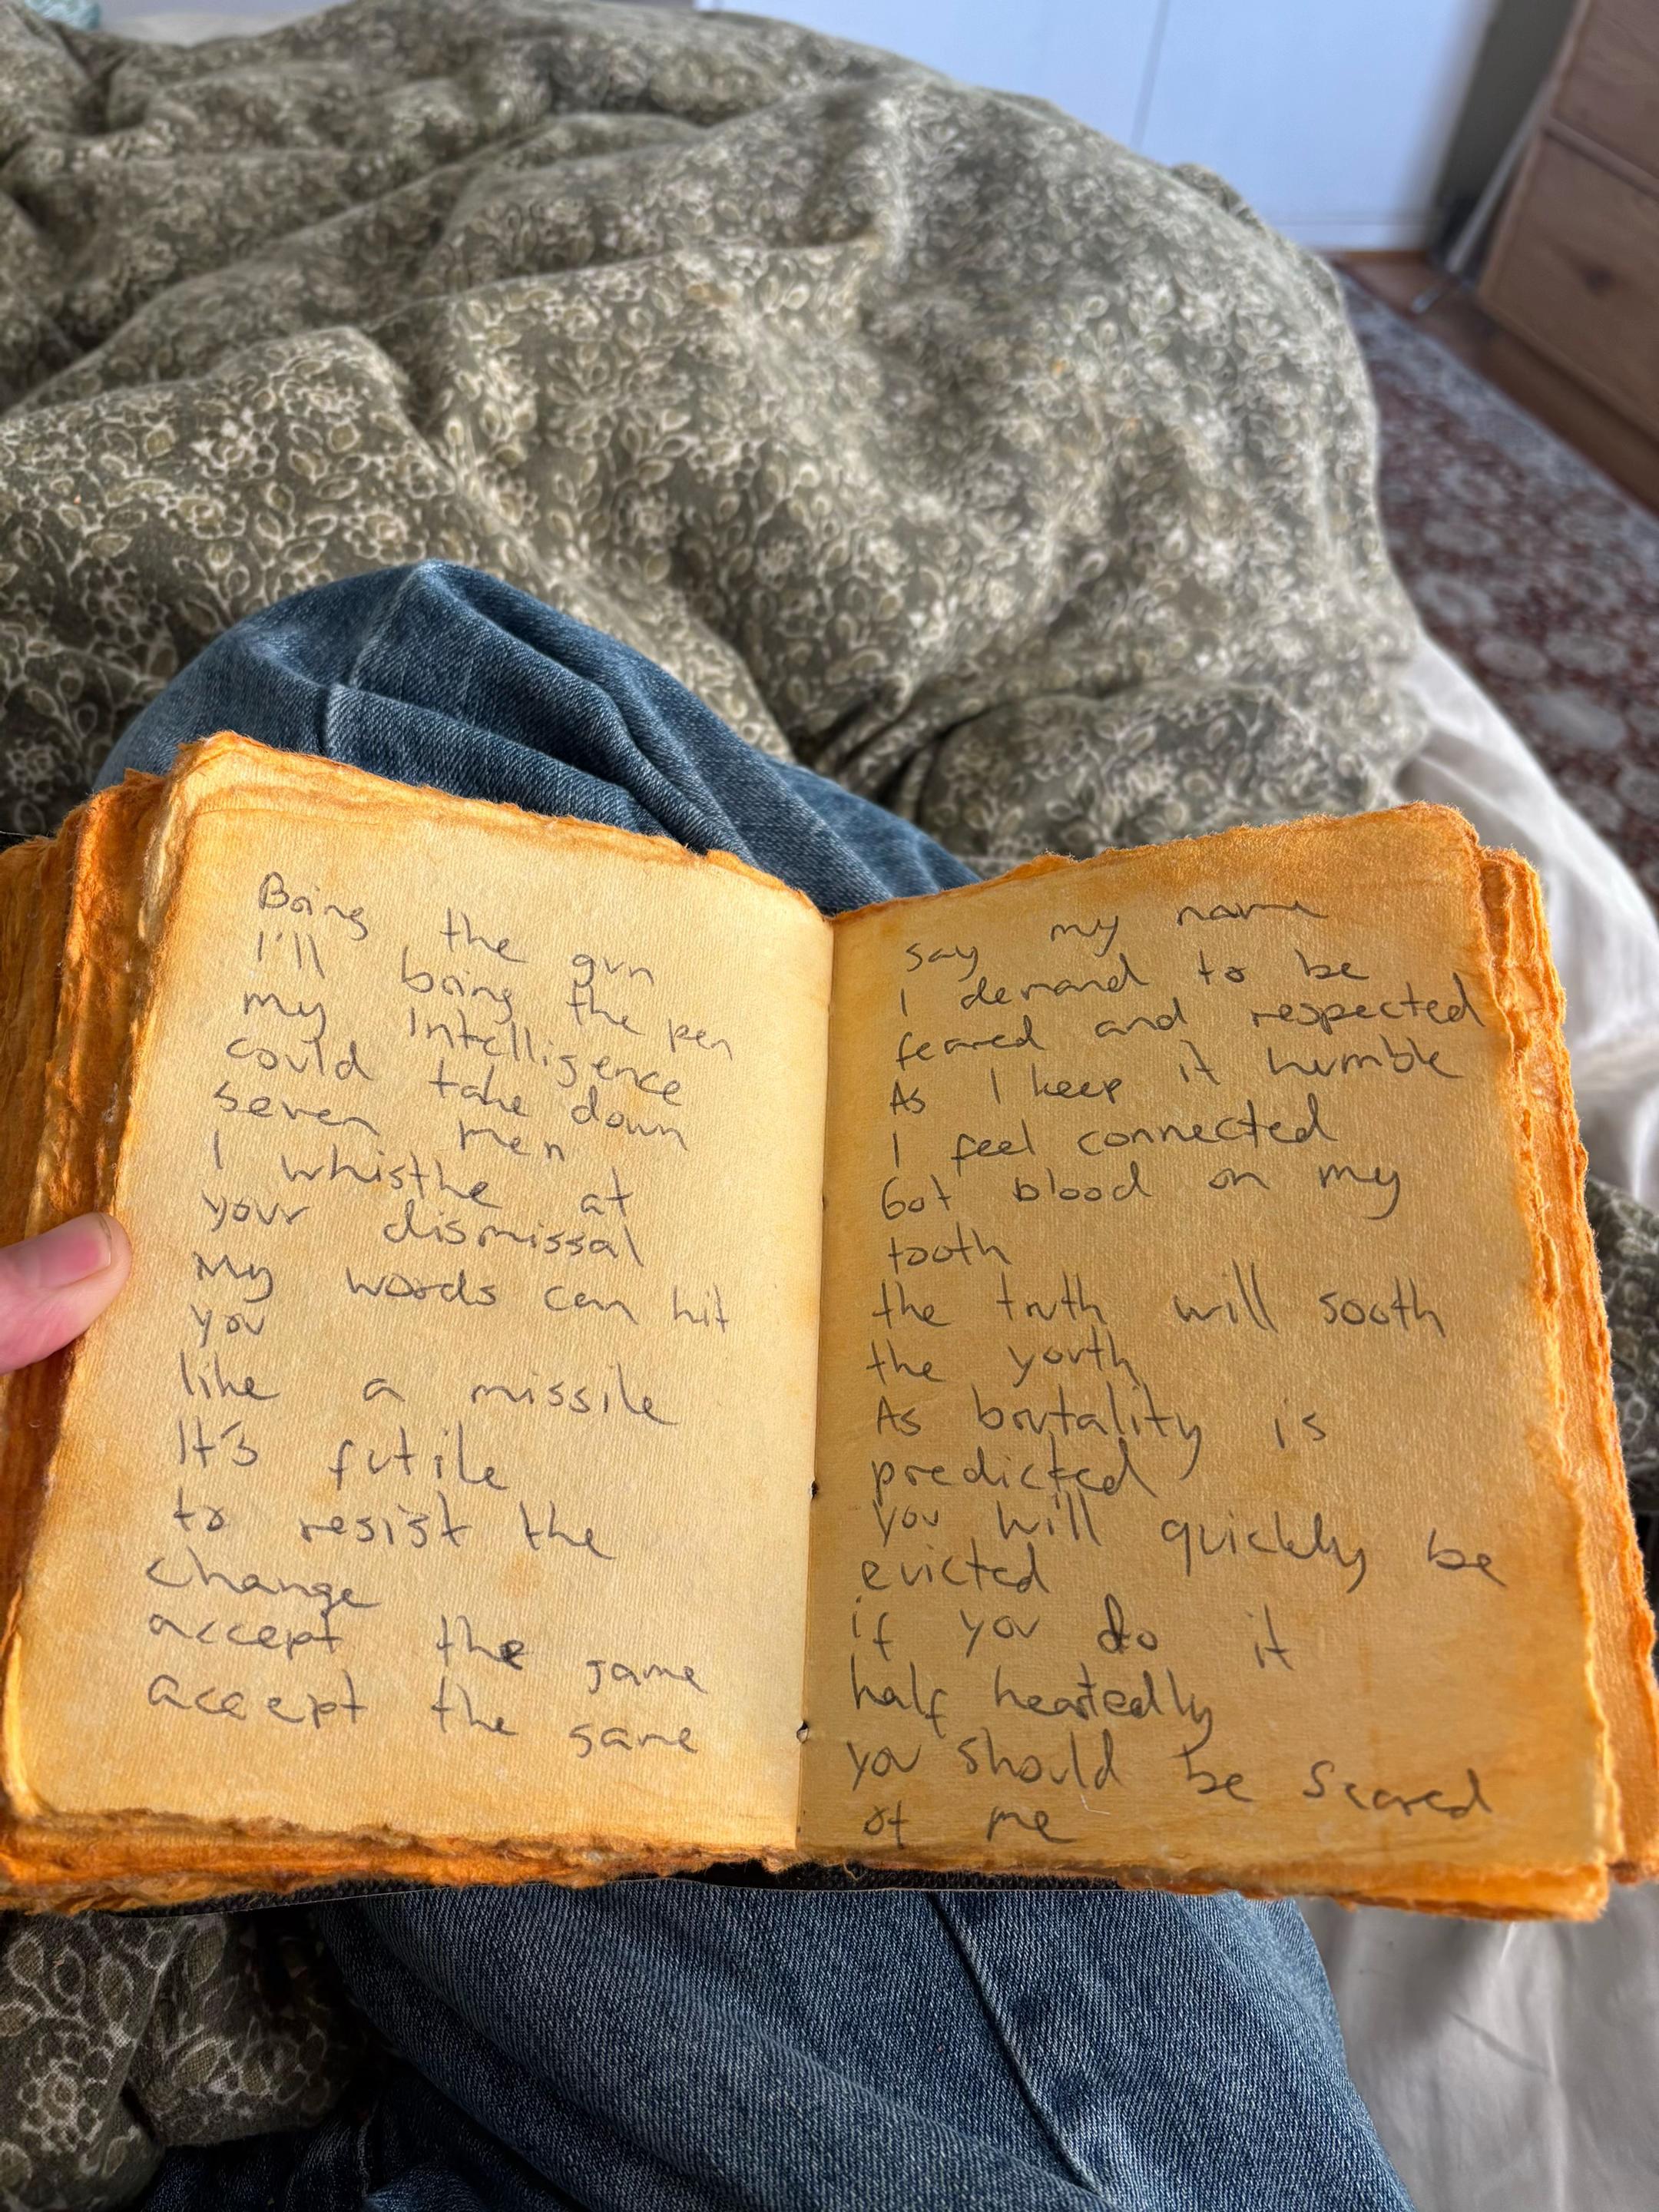 Bring the gun
I'll bring the pen
my Intelligence
could take down
seven men
I whisthe at
your dismissal
My words can hit
you
like a missile
It's futile
to resist the
change
accept the game
accept the same
say my name
I demand to be
feared and respected
As I keep it humble
I feel connected
Got blood on my
tooth
the truth will sooth
the youth
As brutality is
predicted
you will quickly be
evicted
if you do it
half heartedly
you should be scared
of me